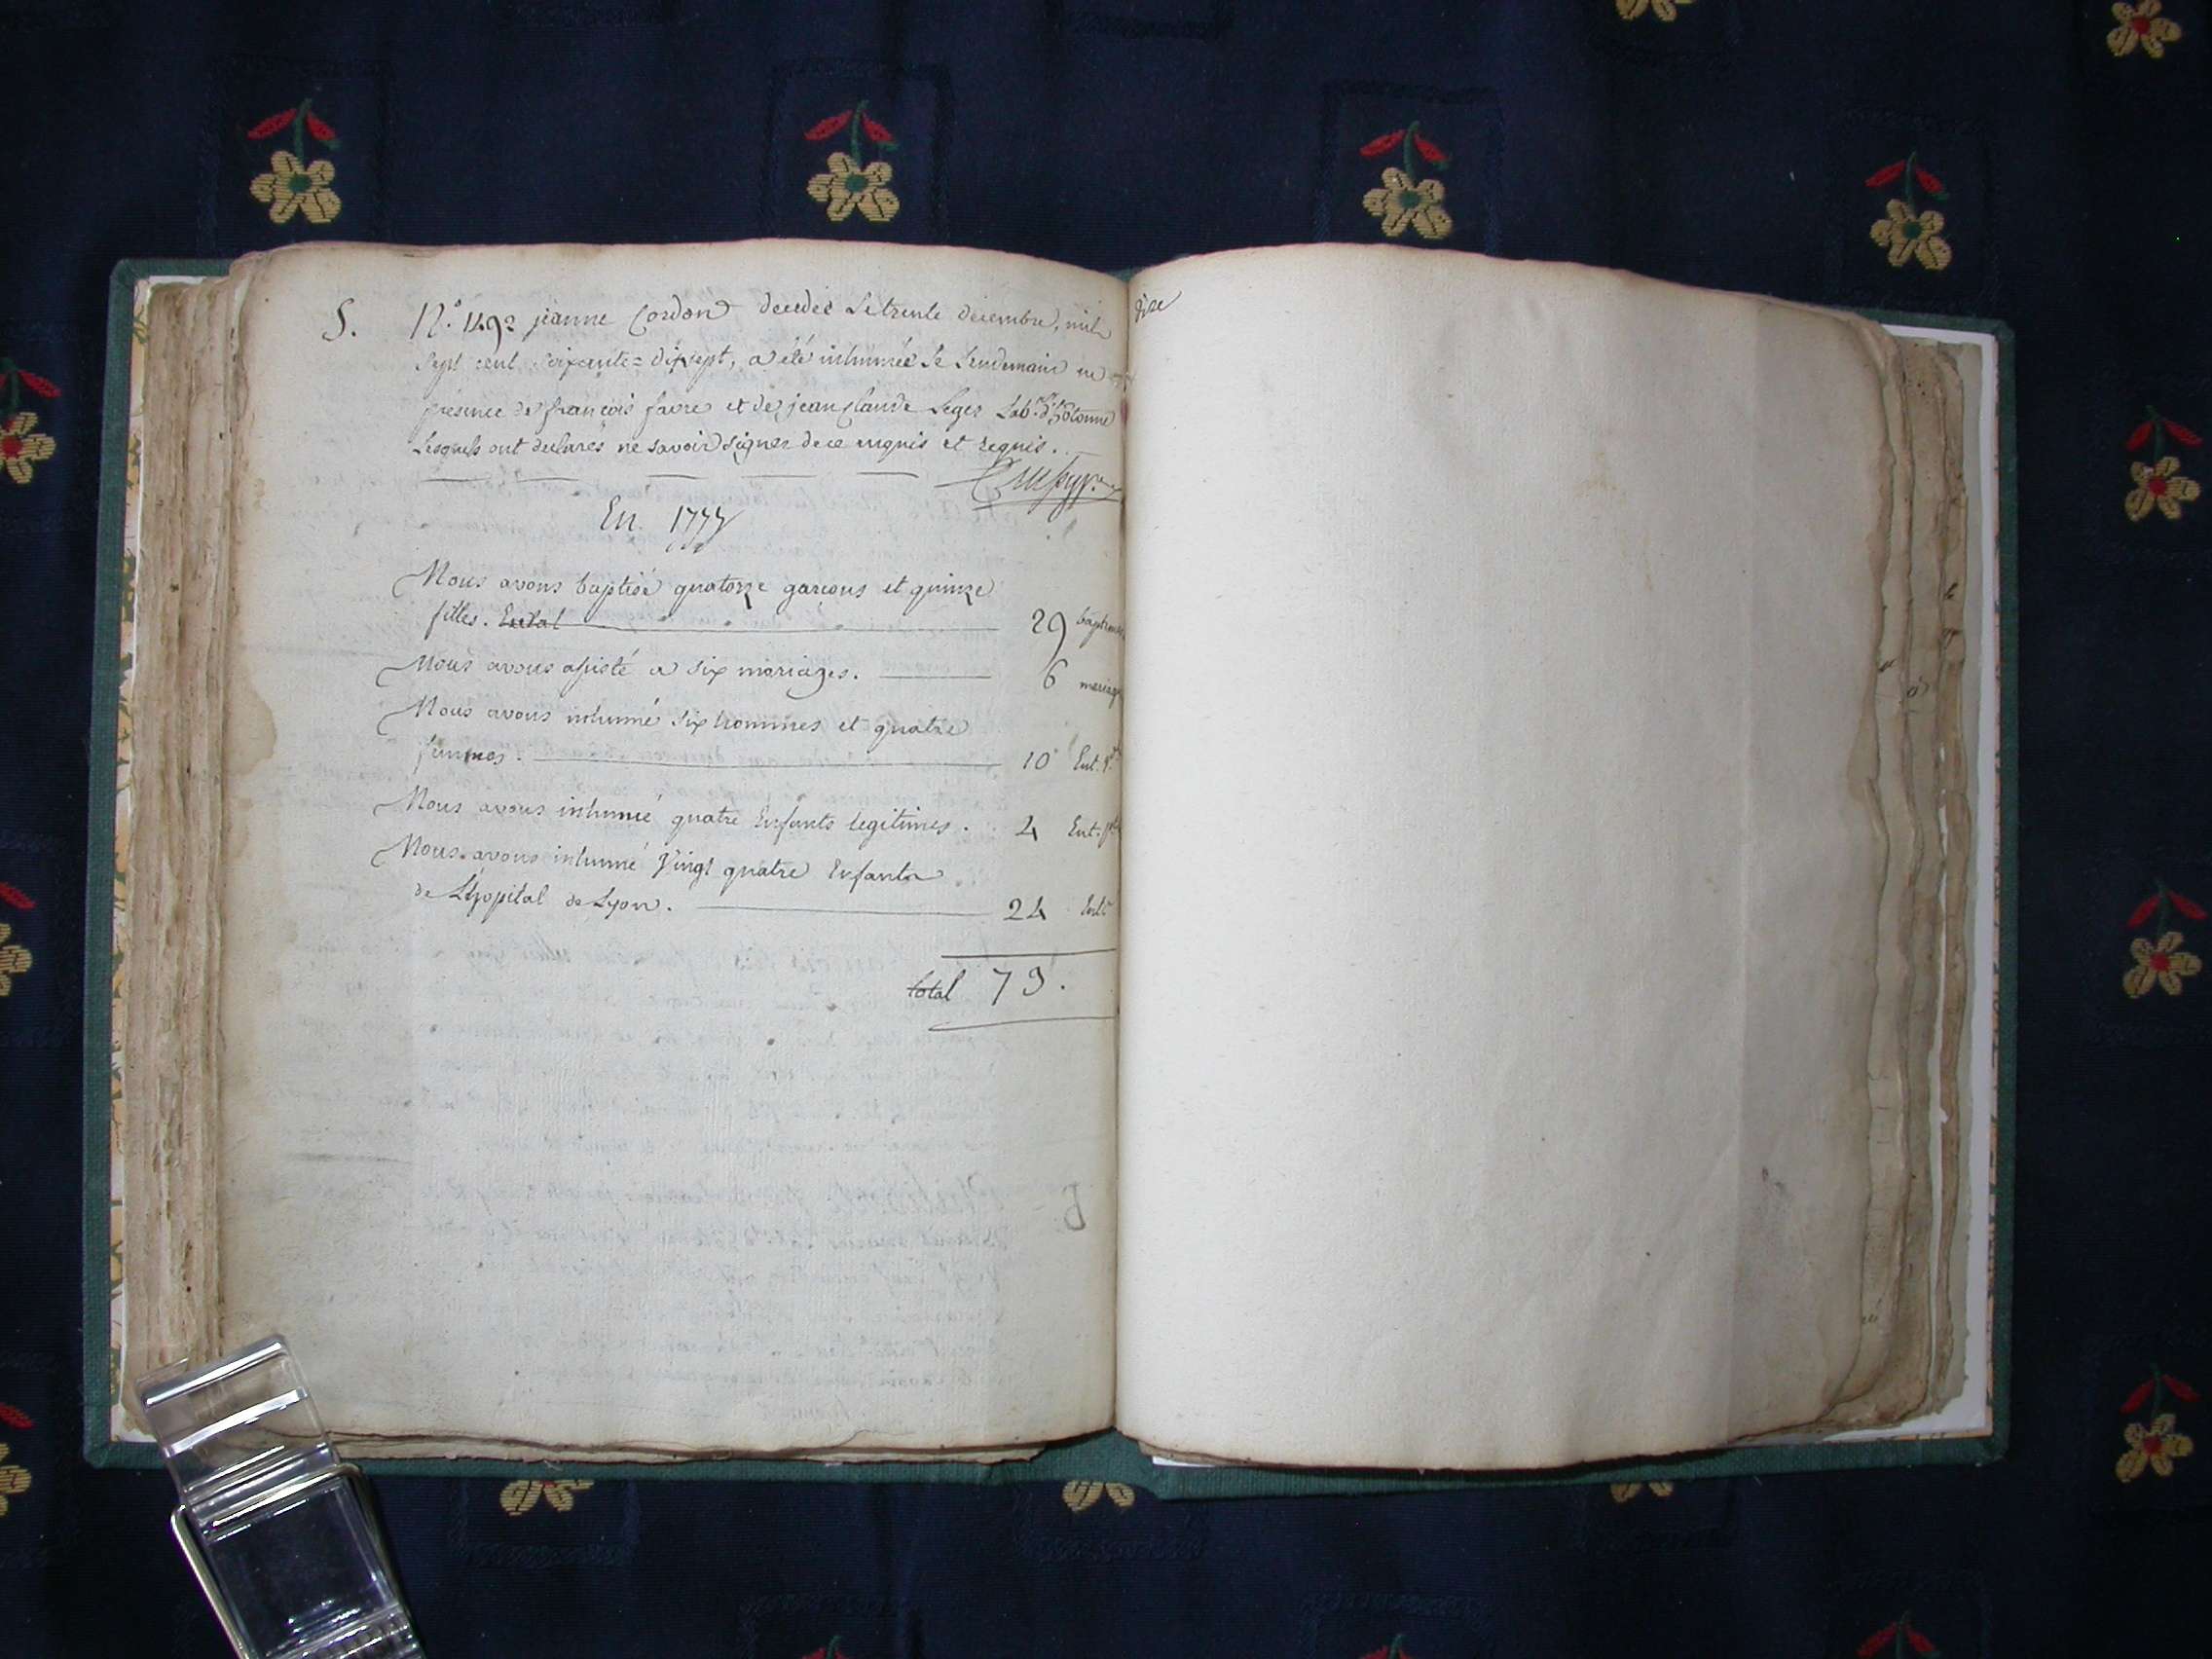 S. N.° 1492 jeanne Cordon decedeé Le trente decembre, mil
Sept cent Soixante=dixsept, a été inhumée le lendemain en
présence de françois favre et de jean claude Leger Lab.rs d'hotonne
Lesquels ont declarés ne savoir signer de ce enquis et requis.
En 1777
Nous avons baptisé quatorze garçons et quinze
filles. 29 baptemes
Nous avons assisté a six mariages. 6 mariages
Nous avons inhumé Six hommes et quatre
femmes. 10 Ent. g.ds
Nous avons inhumé quatre Enfants legitimes. 4 Ent. p.ts
Nous avons inhumé Vingt quatre Enfants
de L'hopital de Lyon. 24 Ent.s
total 73.